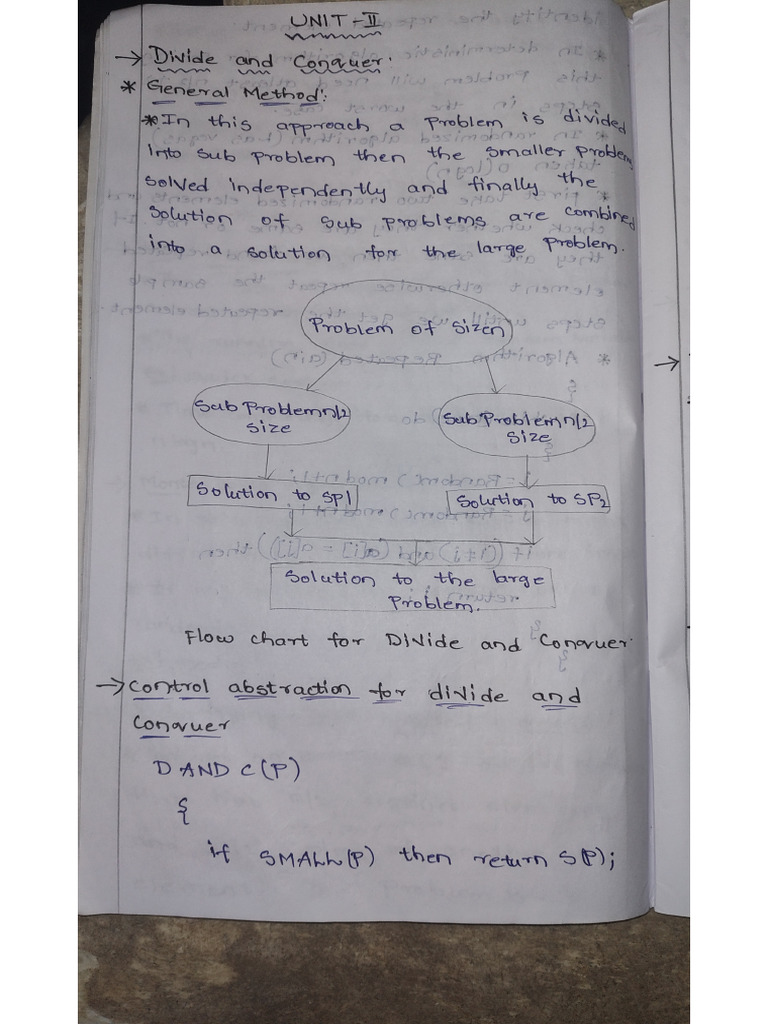 UNIT-II
→ Divide and Conquer.
* General Method:
* In this approach a Problem is divided
into sub problem then the smaller problem
solved independently and finally the
solution of sub problems are combined
into a solution for the large Problem.
Problem of sizen
Sub Problem n/2
size
Sub Problem n/2
size
Solution to SP1
Solution to SP2
Solution to the large
Problem.
Flow chart for Divide and Conquer
→ Control abstraction for divide and
Conquer
D AND C(P)
{
if SMALL(P) then return S(P);